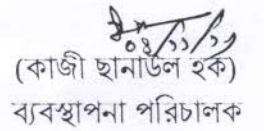 ০৪/১১/১৩
(কাজী ছানাউল হক)
ব্যবস্থাপনা পরিচালক